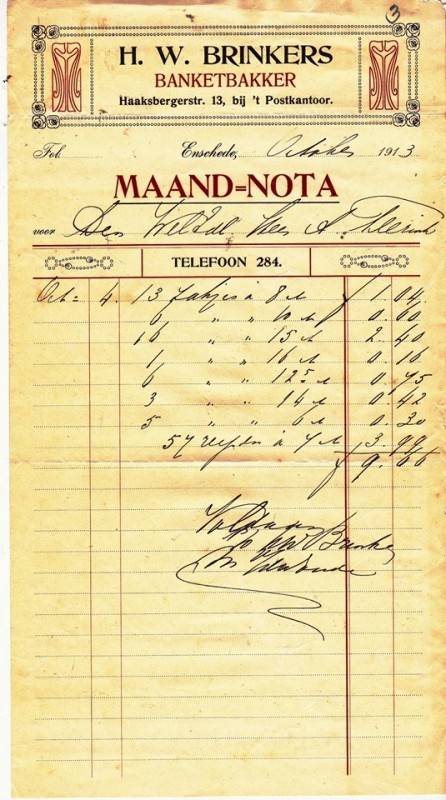 3
H. W. BRINKERS
BANKETBAKKER
Haaksbergerstr. 13, bij 't Postkantoor.
Fol. Enschede, October 1913
MAAND=NOTA
voor Den WelEd. Heer A.
TELEFOON 284.
Oct: 4. 13 zakjes à 8 ct f 1.04.
6 " " 10 ct 0.60
16 " " 15 ct 2.40
1 " " 16 ct 0.16
6 " " 12⁵ ct 0.75
3 " " 14 ct 0.42
5 " " 6 ct 0.30
57 à 7 ct 3.99
f 9.66
Voldaan
Brinkers